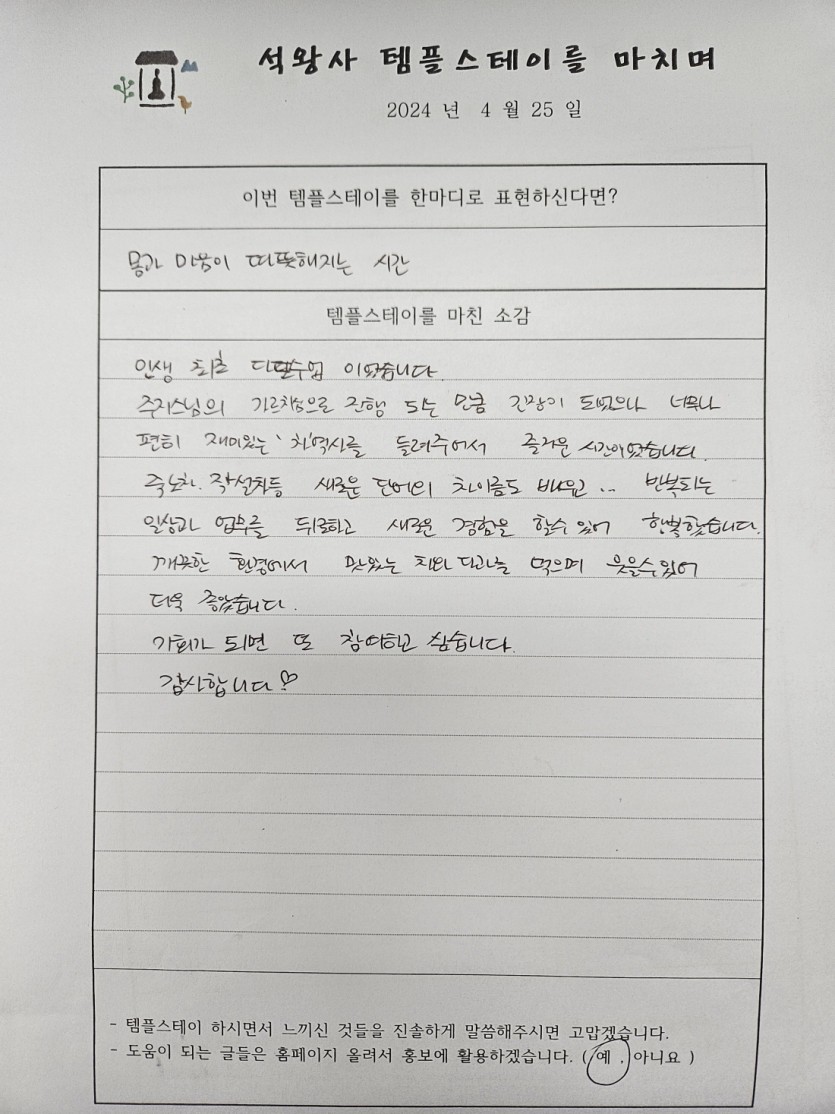 석왕사 템플스테이를 마치며
2024 년 4 월 25 일
이번 템플스테이를 한마디로 표현하신다면?
몸과 마음이 따뜻해지는 시간
템플스테이를 마친 소감
인생 최초 다도수업 이었습니다.
주지스님의 가르치심으로 진행 되는 만큼 긴장이 되었으나 너무나
편히 재미있는 '차'역사를 들려주어서 즐거운 시간이었습니다.
죽노차. 작설차등 새로운 단어의 차이름도 배우고 .. 반복되는
일상과 업무를 뒤로하고 새로운 경험을 할수 있어 행복했습니다.
깨끗한 환경에서 맛있는 차와 다과를 먹으며 웃을수있어
더욱 좋았습니다.
기회가 되면 또 참여하고 싶습니다.
감사합니다♡
- 템플스테이 하시면서 느끼신 것들을 진솔하게 말씀해주시면 고맙겠습니다.
- 도움이 되는 글들은 홈페이지 올려서 홍보에 활용하겠습니다. ( 예 . 아니요 )